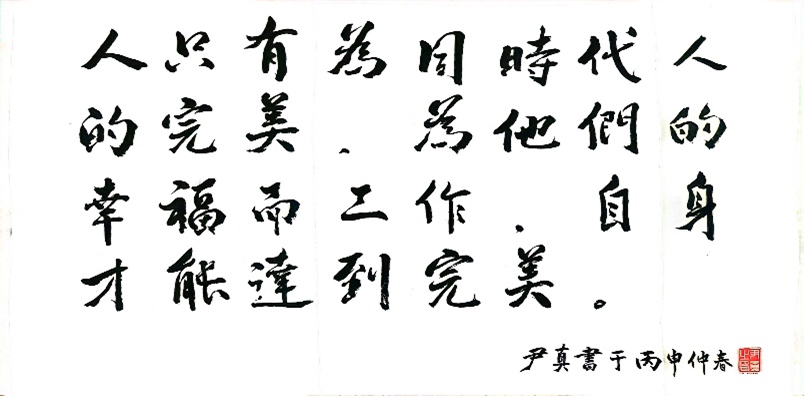 人只有為同時代人
的完美、為他們的
幸福而工作,自身
才能達到完美。
尹真書于丙申仲春